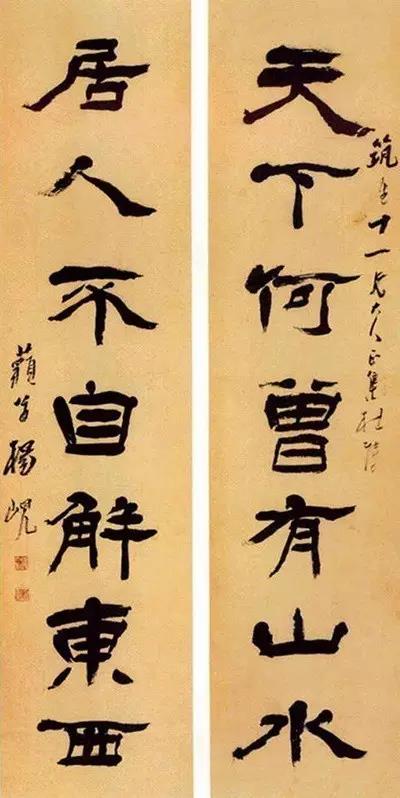 天下何曾有山水
十一兄大人正集杜
居人不自解東西
楊峴